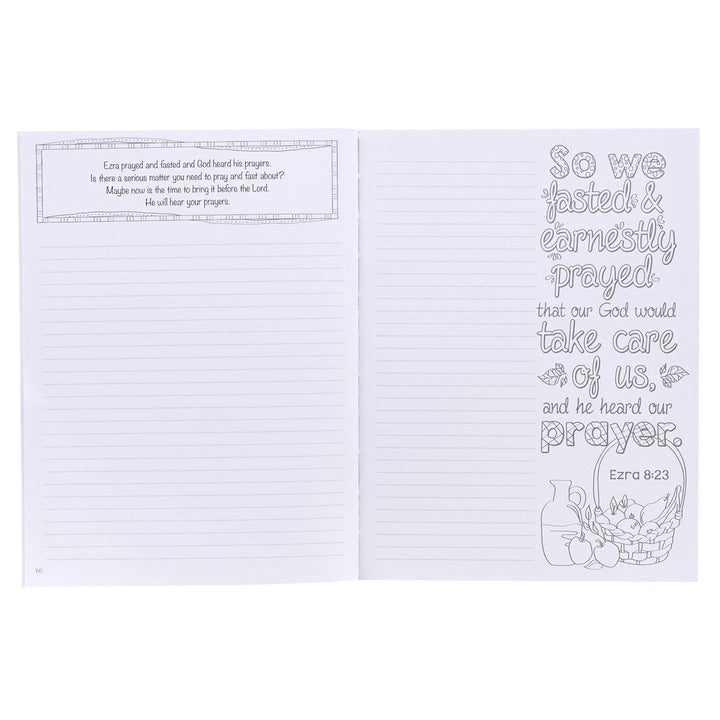 Ezra prayed and fasted and God heard his prayers.
Is there a serious matter you need to pray and fast about?
Maybe now is the time to bring it before the Lord.
He will hear your prayers.
16
So we
fasted &
earnestly
prayed
that our God would
take care
of us,
and he heard our
prayer.
Ezra 8:23